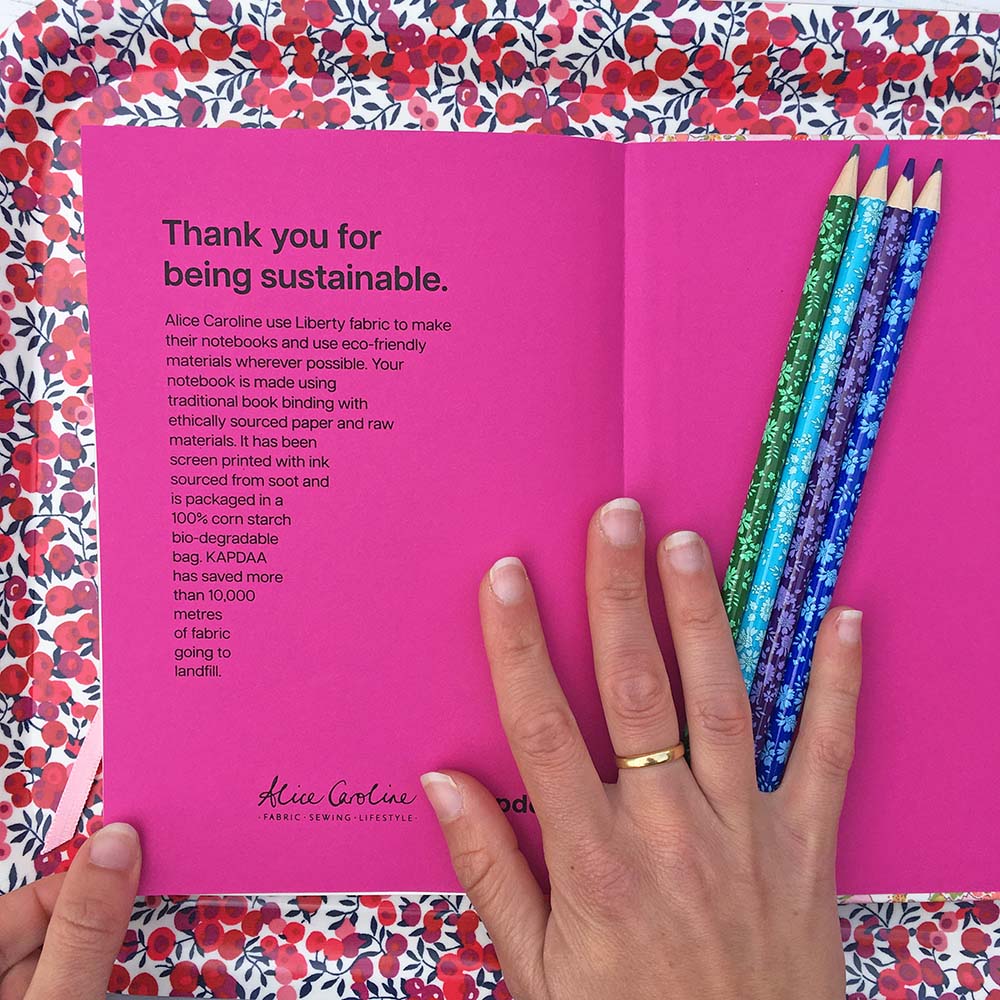 Thank you for
being sustainable.
Alice Caroline use Liberty fabric to make
their notebooks and use eco-friendly
materials wherever possible. Your
notebook is made using
traditional book binding with
ethically sourced paper and raw
materials. It has been
screen printed with ink
sourced from soot and
is packaged in a
100% corn starch
bio-degradable
bag. KAPDAA
has saved more
than 10,000
metres
of fabric
going to
landfill.
Alice Caroline
·FABRIC·SEWING·LIFESTYLE·